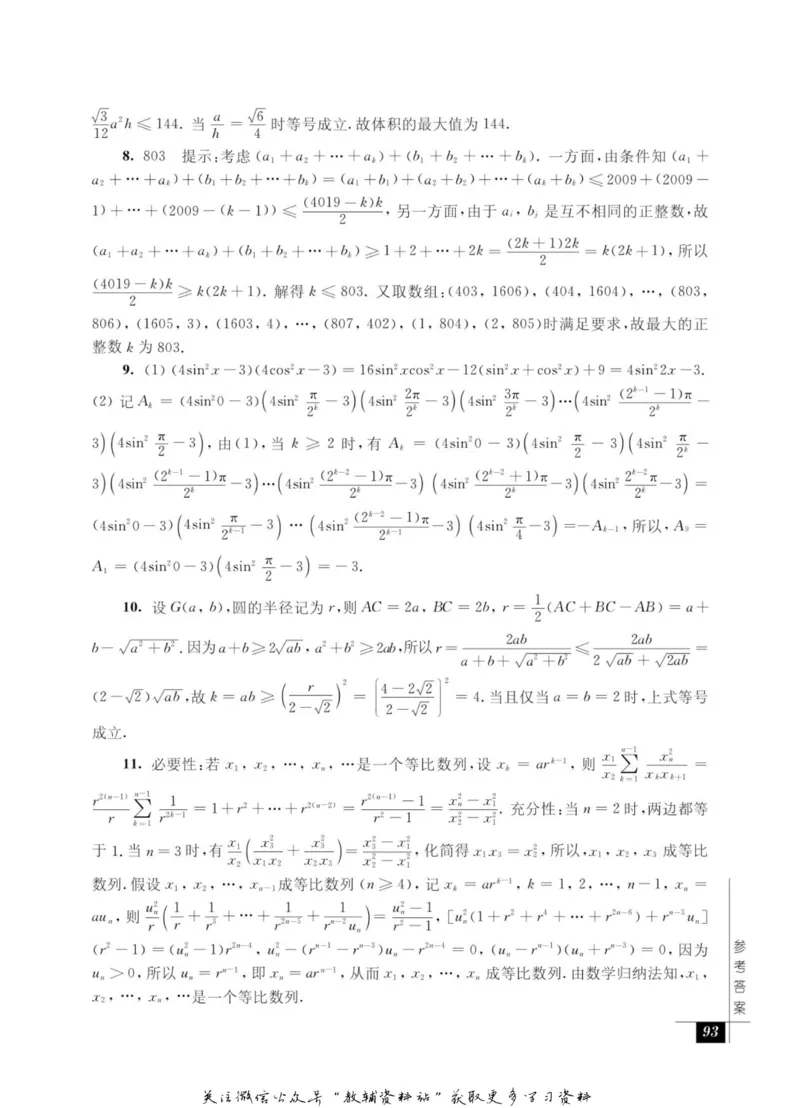 $\frac{\sqrt{3}}{12}a^2h \leqslant 144$. 当 $\frac{a}{h} = \frac{\sqrt{6}}{4}$ 时等号成立. 故体积的最大值为 144.
8. 803 提示:考虑 $(a_1 + a_2 + \cdots + a_k) + (b_1 + b_2 + \cdots + b_k)$. 一方面,由条件知 $(a_1 +$
$a_2 + \cdots + a_k) + (b_1 + b_2 + \cdots + b_k) = (a_1 + b_1) + (a_2 + b_2) + \cdots + (a_k + b_k) \leqslant 2009 + (2009 -$
$1) + \cdots + (2009 - (k - 1)) \leqslant \frac{(4019 - k)k}{2}$, 另一方面,由于 $a_i$, $b_j$ 是互不相同的正整数,故
$(a_1 + a_2 + \cdots + a_k) + (b_1 + b_2 + \cdots + b_k) \geqslant 1 + 2 + \cdots + 2k = \frac{(2k + 1)2k}{2} = k(2k + 1)$, 所以
$\frac{(4019 - k)k}{2} \geqslant k(2k + 1)$. 解得 $k \leqslant 803$. 又取数组:(403, 1606), (404, 1604), …, (803,
806), (1605, 3), (1603, 4), …, (807, 402), (1, 804), (2, 805)时满足要求,故最大的正
整数 $k$ 为 803.
9. (1) $(4\sin^2 x - 3)(4\cos^2 x - 3) = 16\sin^2 x\cos^2 x - 12(\sin^2 x + \cos^2 x) + 9 = 4\sin^2 2x - 3$.
(2) 记 $A_k = (4\sin^2 0 - 3)\left(4\sin^2 \frac{\pi}{2^k} - 3\right)\left(4\sin^2 \frac{2\pi}{2^k} - 3\right)\left(4\sin^2 \frac{3\pi}{2^k} - 3\right)\cdots\left(4\sin^2 \frac{(2^{k-1} - 1)\pi}{2^k} -\right.$
$\left.3\right)\left(4\sin^2 \frac{\pi}{2} - 3\right)$, 由(1),当 $k \geqslant 2$ 时,有 $A_k = (4\sin^2 0 - 3)\left(4\sin^2 \frac{\pi}{2} - 3\right)\left(4\sin^2 \frac{\pi}{2^k} -\right.$
$\left.3\right)\left(4\sin^2 \frac{(2^{k-1} - 1)\pi}{2^k} - 3\right)\cdots\left(4\sin^2 \frac{(2^{k-2} - 1)\pi}{2^k} - 3\right)\left(4\sin^2 \frac{(2^{k-2} + 1)\pi}{2^k} - 3\right)\left(4\sin^2 \frac{2^{k-2}\pi}{2^k} - 3\right) =$
$(4\sin^2 0 - 3)\left(4\sin^2 \frac{\pi}{2^{k-1}} - 3\right)\cdots\left(4\sin^2 \frac{(2^{k-2} - 1)\pi}{2^{k-1}} - 3\right)\left(4\sin^2 \frac{\pi}{4} - 3\right) = -A_{k-1}$, 所以, $A_9 =$
$A_1 = (4\sin^2 0 - 3)\left(4\sin^2 \frac{\pi}{2} - 3\right) = -3$.
10. 设 $G(a, b)$,圆的半径记为 $r$,则 $AC = 2a$, $BC = 2b$, $r = \frac{1}{2}(AC + BC - AB) = a +$
$b - \sqrt{a^2 + b^2}$. 因为 $a + b \geqslant 2\sqrt{ab}$, $a^2 + b^2 \geqslant 2ab$,所以 $r = \frac{2ab}{a + b + \sqrt{a^2 + b^2}} \leqslant \frac{2ab}{2\sqrt{ab} + \sqrt{2ab}} =$
$(2 - \sqrt{2})\sqrt{ab}$,故 $k = ab \geqslant \left(\frac{r}{2 - \sqrt{2}}\right)^2 = \left[\frac{4 - 2\sqrt{2}}{2 - \sqrt{2}}\right]^2 = 4$. 当且仅当 $a = b = 2$ 时,上式等号
成立.
11. 必要性:若 $x_1$, $x_2$, …, $x_n$, …是一个等比数列,设 $x_k = ar^{k-1}$, 则 $\frac{x_1}{x_2}\sum_{k=1}^{n-1}\frac{x_n^2}{x_k x_{k+1}} =$
$\frac{r^{2(n-1)}}{r}\sum_{k=1}^{n-1}\frac{1}{r^{2k-1}} = 1 + r^2 + \cdots + r^{2(n-2)} = \frac{r^{2(n-1)} - 1}{r^2 - 1} = \frac{x_n^2 - x_1^2}{x_2^2 - x_1^2}$. 充分性:当 $n = 2$ 时,两边都等
于 1. 当 $n = 3$ 时,有 $\frac{x_1}{x_2}\left(\frac{x_3^2}{x_1 x_2} + \frac{x_3^2}{x_2 x_3}\right) = \frac{x_3^2 - x_1^2}{x_2^2 - x_1^2}$,化简得 $x_1 x_3 = x_2^2$,所以, $x_1$, $x_2$, $x_3$ 成等比
数列. 假设 $x_1$, $x_2$, …, $x_{n-1}$ 成等比数列 $(n \geqslant 4)$, 记 $x_k = ar^{k-1}$, $k = 1, 2, \cdots, n - 1$, $x_n =$
$au_n$, 则 $\frac{u_n^2}{r}\left(\frac{1}{r} + \frac{1}{r^3} + \cdots + \frac{1}{r^{2n-5}} + \frac{1}{r^{n-2}u_n}\right) = \frac{u_n^2 - 1}{r^2 - 1}$, $[u_n^2(1 + r^2 + r^4 + \cdots + r^{2n-6}) + r^{n-3}u_n]$
$(r^2 - 1) = (u_n^2 - 1)r^{2n-4}$, $u_n^2 - (r^{n-1} - r^{n-3})u_n - r^{2n-4} = 0$, $(u_n - r^{n-1})(u_n + r^{n-3}) = 0$, 因为
$u_n > 0$, 所以 $u_n = r^{n-1}$, 即 $x_n = ar^{n-1}$, 从而 $x_1$, $x_2$, …, $x_n$ 成等比数列. 由数学归纳法知, $x_1$,
$x_2$, …, $x_n$, …是一个等比数列.
参考答案
93
关注微信公众号“教辅资料站”获取更多学习资料